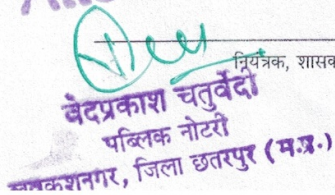 नियंत्रक, शासक
वेदप्रकाश चतुर्वेदी
पब्लिक नोटरी
जिला छतरपुर (म.प्र.)